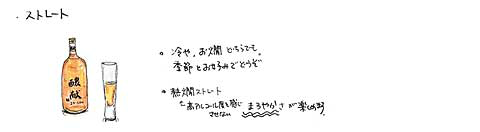 ・ストレート
・冷や、お燗どちらでも。
季節とお好みでどうぞ
・熱燗ストレート
高アルコール度を感じ
させない まろやかさが楽しめる
醸献